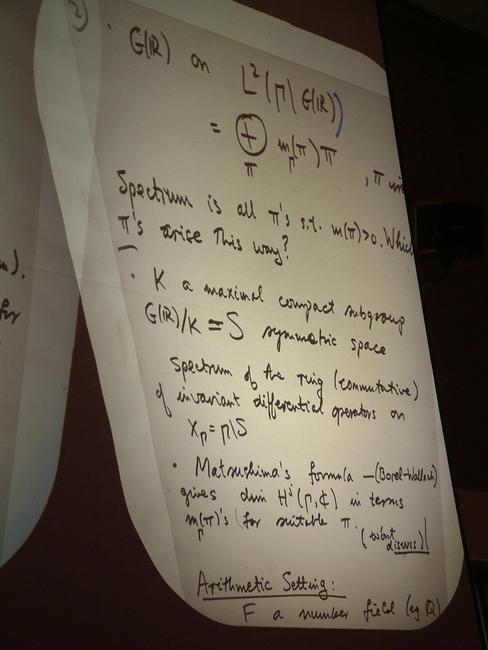 2)
· G(ℝ) on L²(Γ\G(ℝ))
= ⊕ m_Γ(π) π
π
, π
Spectrum is all π's s.t. m(π)>0. Which
π's arise this way?
· K a maximal compact subgroup
G(ℝ)/K = S symmetric space
spectrum of the ring (commutative)
of invariant differential operators on
X_Γ = Γ\S
· Matsushima's formula – (Borel-Wallach)
gives dim Hʲ(Γ,ℂ) in terms
m_Γ(π)'s (for suitable π.
(won't
discuss)
Arithmetic Setting:
F a number field (eg Q)
for